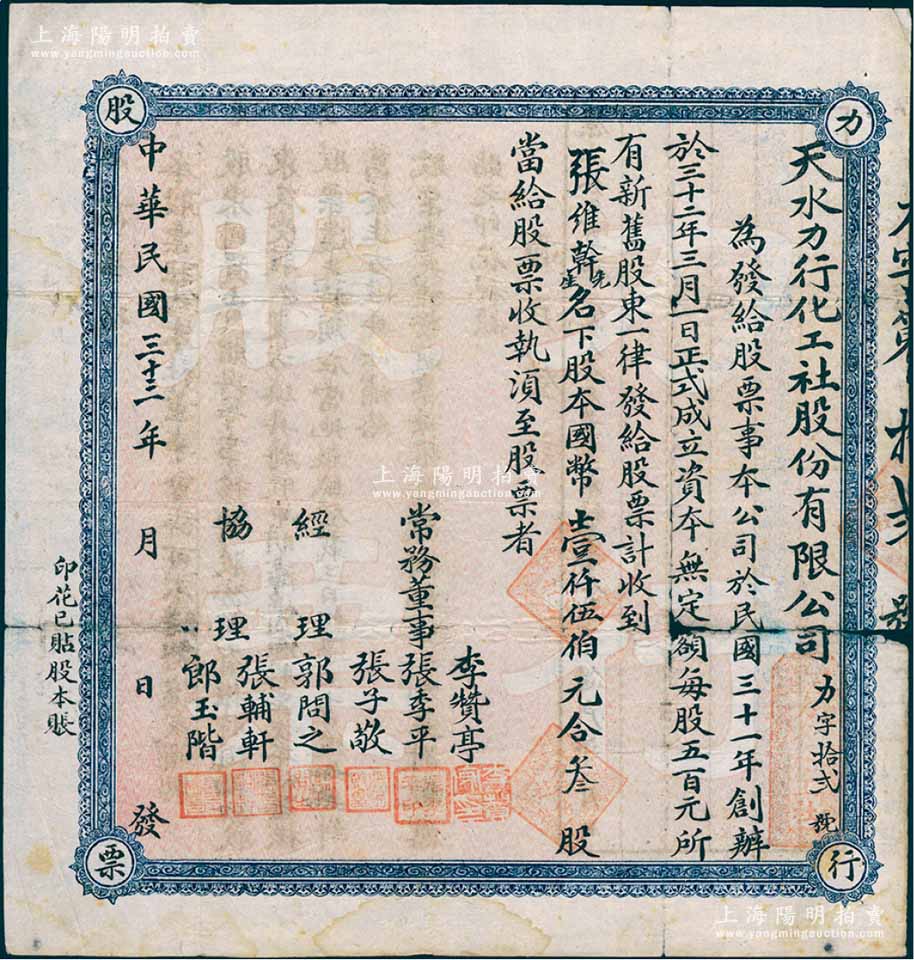 上海陽明拍賣
www.yangmingauction.com
力行股票
力字第拾貳號
天水力行化工社股份有限公司 力字拾弍號
為發給股票事本公司於民國三十一年創辦
於三十二年三月一日正式成立資本無定額每股五百元所
有新舊股東一律發給股票計收到
張維幹先生名下股本國幣壹仟伍伯元合叁股
當給股票收執須至股票者
常務董事
李贊亭
張季平
張子敬
經理 郭問之
協理
張輔軒
郎玉階
中華民國三十三年 月 日發
印花已貼股本賬
上海陽明拍賣
www.yangmingauction.com
上海陽明拍賣
www.yangmingauction.com